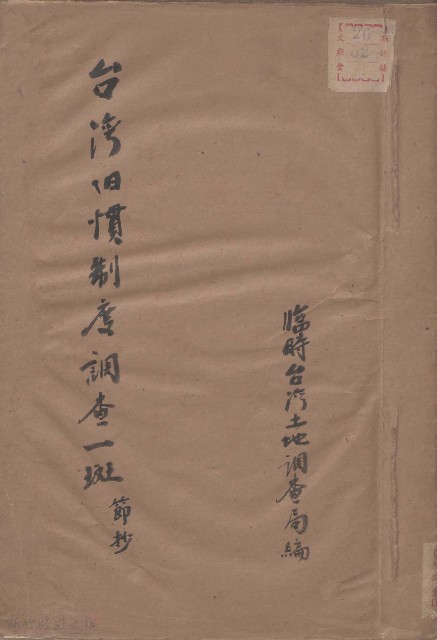 臨時台湾土地調査局編
台湾旧慣制度調査一斑 節抄
文獻會
26